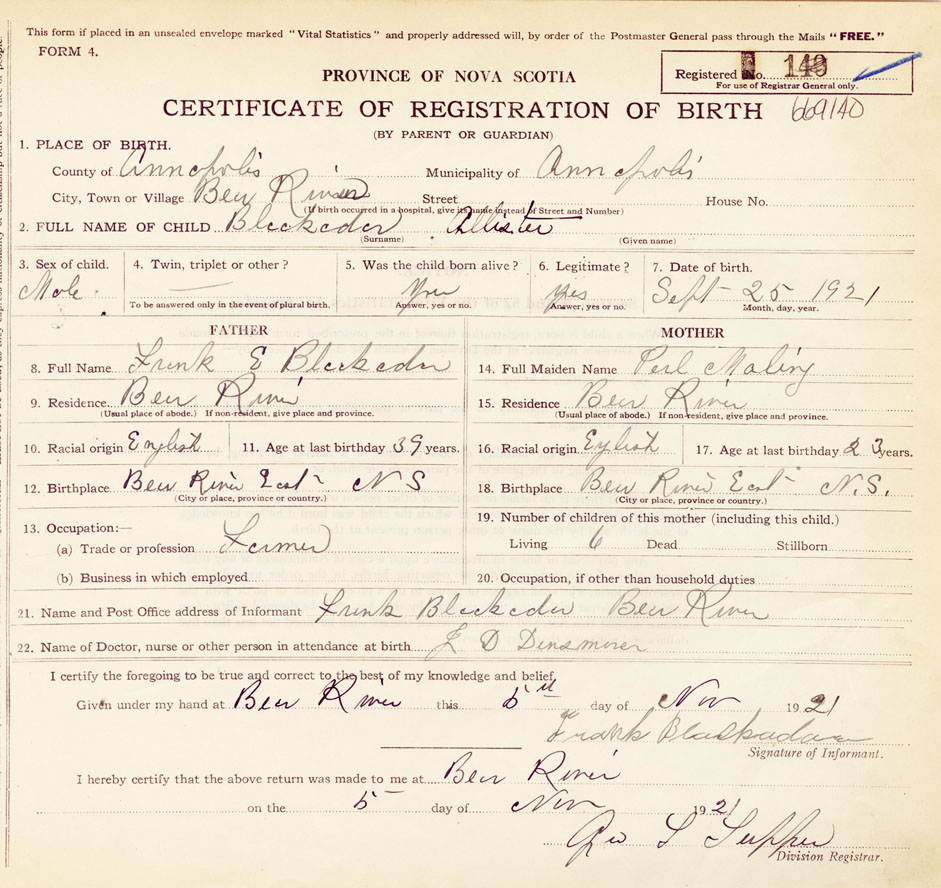 This form if placed in an unsealed envelope marked "Vital Statistics" and properly addressed will, by order of the Postmaster General pass through the Mails "FREE."
FORM 4.
Registered No. 149
For use of Registrar General only.
PROVINCE OF NOVA SCOTIA
CERTIFICATE OF REGISTRATION OF BIRTH 669140
(BY PARENT OR GUARDIAN)
1. PLACE OF BIRTH.
County of Annapolis Municipality of Annapolis
City, Town or Village Bear River Street House No.
(If birth occurred in a hospital, give its name instead of Street and Number)
2. FULL NAME OF CHILD Blackader Allister
(Surname) (Given name)
3. Sex of child. 4. Twin, triplet or other? 5. Was the child born alive? 6. Legitimate? 7. Date of birth.
Male Yes yes Sept 25 1921
To be answered only in the event of plural birth. Answer, yes or no. Answer, yes or no. Month, day, year.
FATHER
8. Full Name Frank E Blackader
9. Residence Bear River
(Usual place of abode.) If non-resident, give place and province.
10. Racial origin English 11. Age at last birthday 39 years.
12. Birthplace Bear River East N S
(City or place, province or country.)
13. Occupation:—
(a) Trade or profession Farmer
(b) Business in which employed
MOTHER
14. Full Maiden Name Perl
15. Residence Bear River
(Usual place of abode.) If non-resident, give place and province.
16. Racial origin English 17. Age at last birthday 23 years.
18. Birthplace Bear River East N.S.
(City or place, province or country.)
19. Number of children of this mother (including this child.)
Living 6 Dead Stillborn
20. Occupation, if other than household duties
21. Name and Post Office address of Informant Frank Blackader Bear River
22. Name of Doctor, nurse or other person in attendance at birth D Dinsmore
I certify the foregoing to be true and correct to the best of my knowledge and belief,
Given under my hand at Bear River this 5th day of Nov 1921
Frank Blackadar
Signature of Informant.
I hereby certify that the above return was made to me at Bear River
on the 5 day of Nov 1921
Geo L Tupper
Division Registrar.